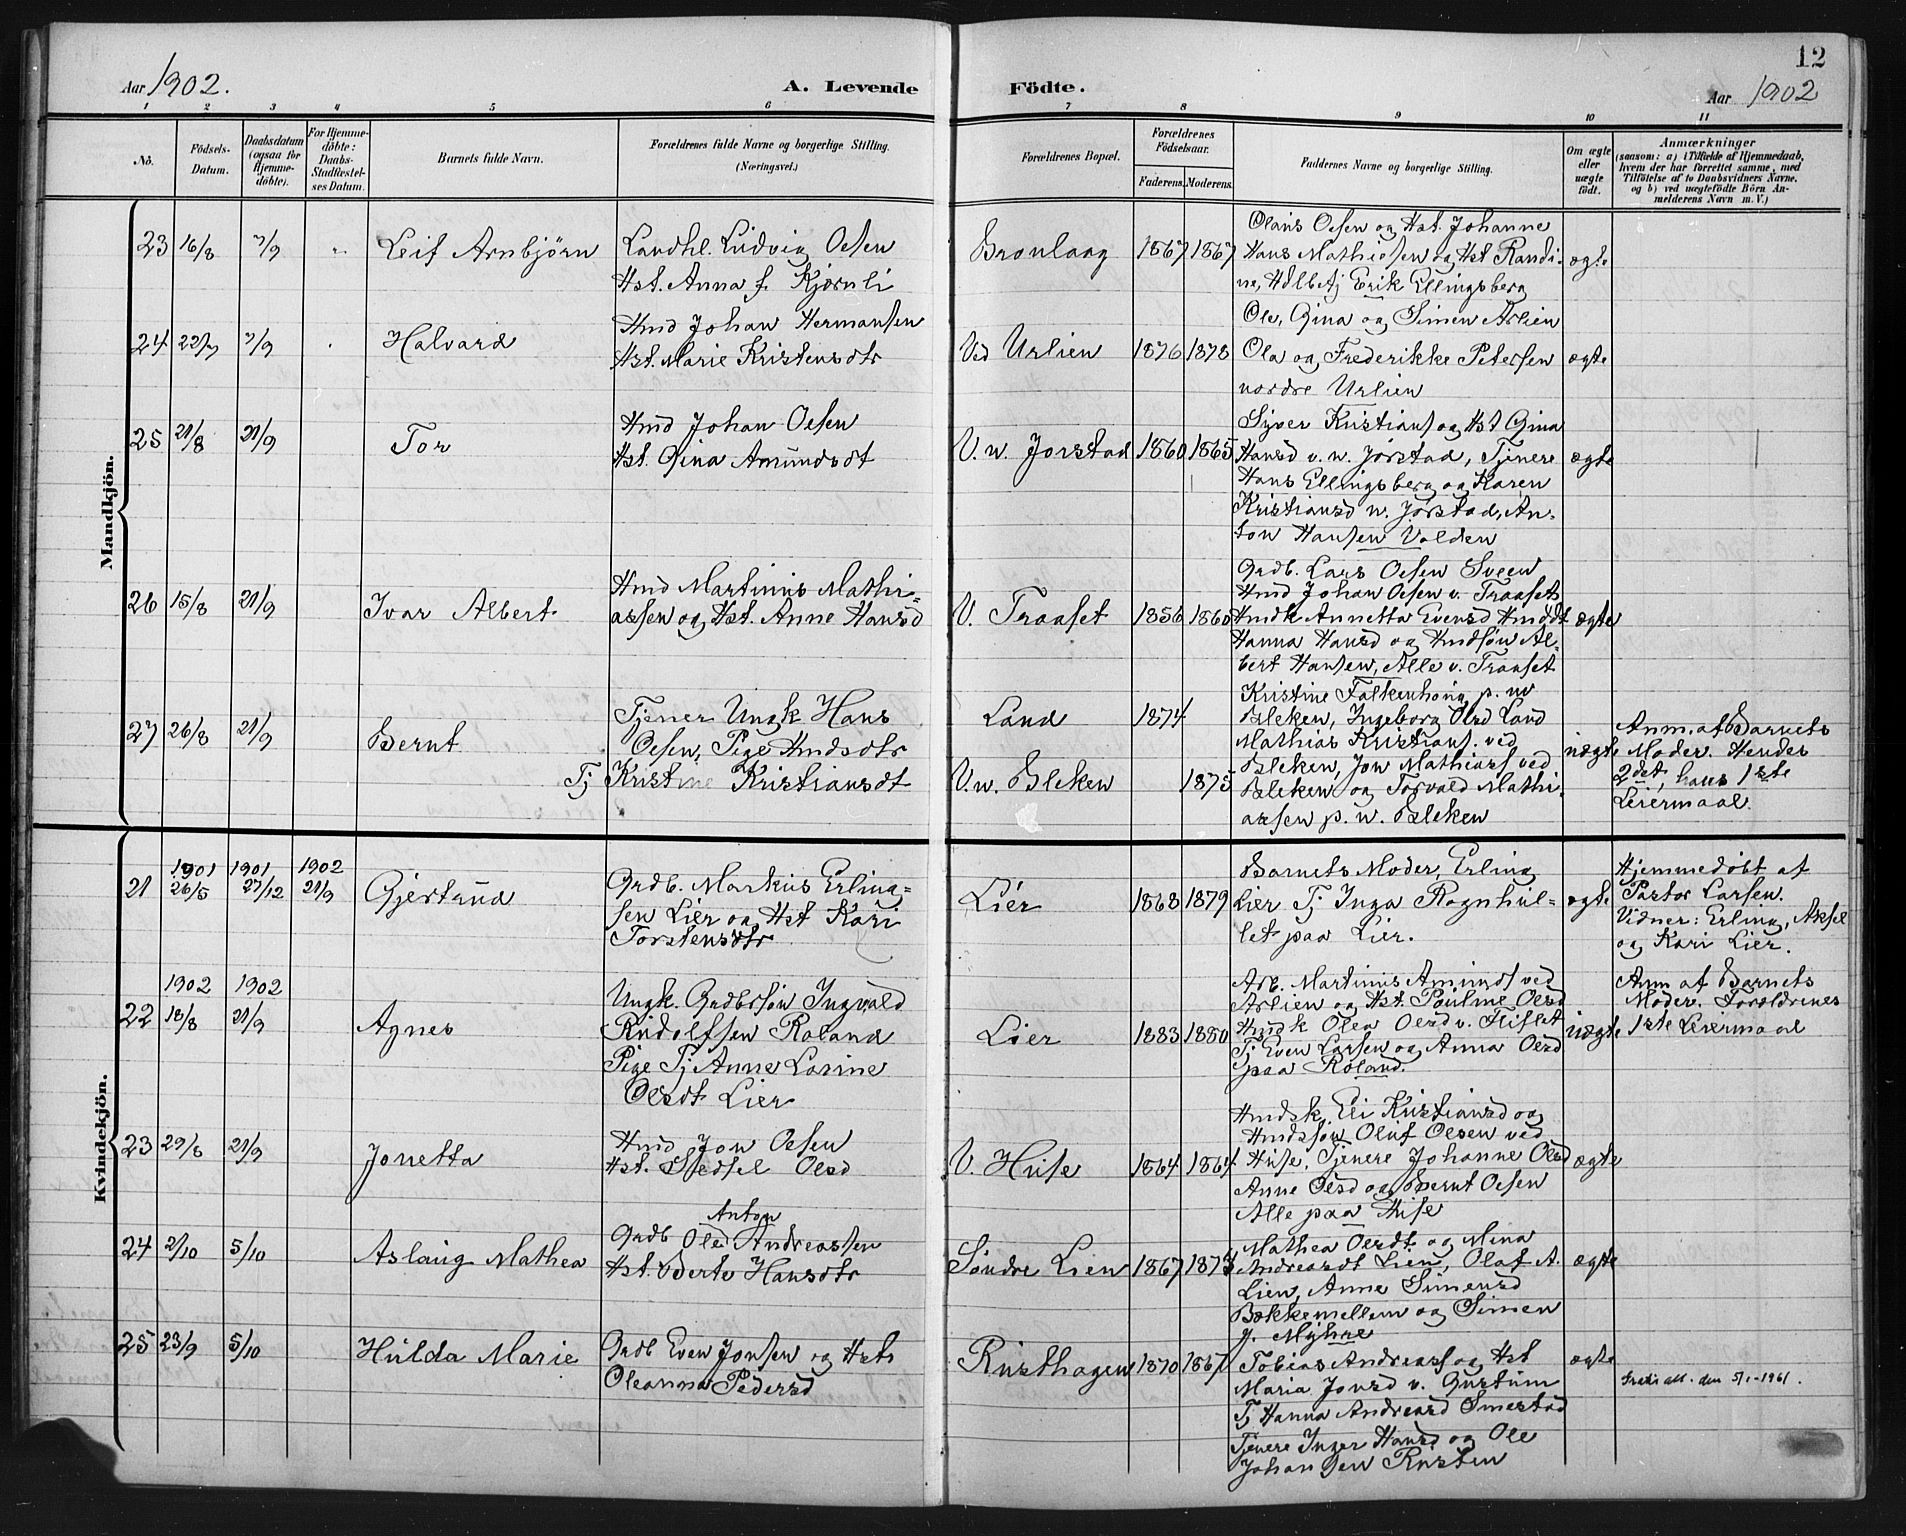 12
Aar 1902. A. Levende Födte. Aar 1902
1 2 3 4 5 6 7 8 9 10 11
No. Födsels-Datum. Daabsdatum (ogsaa for Hjemme-döbte). For Hjemme-döbte: Daabs-Stadfæstel-ses Datum. Barnets fulde Navn. Forældrenes fulde Navne og borgerlige Stilling. (Næringsvei.) Forældrenes Bopæl. Forældrenes Födselsaar. Faderens. Moderens. Faddernes Navne og borgerlige Stilling. Om ægte eller uægte födt. Anmærkninger (saasom: a) i Tilfælde af Hjemmedaab, hvem der har forrettet samme, med Tilföielse af to Daabsvidners Navne, og b) ved uægtefödte Börn An-melderens Navn m. V.)
Mandkjön.
23 16/8 7/9 Leif Arnbjörn
Landhl. Ludvig Olsen
Hst. Anna f. Kjørnli
Bronlaag 1867 1867
Olaus Olsen og Hst. Johanne
Hans Mathiesen og Hst Randi-
ne, Erik Ellingsberg
ægte
24 22/7 7/9 Halvard
Hmd Johan Hermansen
Hst. Marie Kristensdtr
Ved Urlien 1876 1878
Ole, Gina og Simen Arlien
Ola og Frederikke Petersen
nordre Urlien
ægte
25 21/8 21/9 Tor
Hmd Johan Olsen
Hst. Gina Amundsdt
V. n. Jorstad 1860 1865
Syver Kristians og Hst Gina
Hansd v. n. Jørstad, Tjenere
Hans Ellingsberg og Karen
Kristiansd n. Jørstad, An-
ton Hansen Volden
ægte
26 15/8 21/9 Ivar Albert
Hmd Martinus Mathi-
assen og Hst. Anne Hansd
V. Traaset 1856 1860
Grdb. Lars Olsen Sveen
Hmd Johan Olsen v. Traaset
Hmdk Annetta Evensd Hmddt
Hanna Hansd og Hmdsøn Al-
bert Hansen, Alle v. Traaset
ægte
27 26/8 21/9 Bernt
Tjener Ungk Hans
Olsen, Pige Hmdsdtr
Tj Kristine Kristiansdt
Land 1874
V. n. Bleken 1875
Kristine Falkenhaug p. nv
Bleken, Ingeborg Olsd Land
Mathias Kristians. ved
Bleken, Jon Mathiass ved
Bleken og Torvald Mathi-
assen p. n. Bleken
uægte
Anm. af Barnets
Moder. Hendes
2det, hans 1ste
Leiermaal.
Kvindekjön.
21 1901 26/5 1901 27/12 1902 21/9 Gjertrud
Grdb. Markus Erling-
sen Lier og Hst Kari
Torstensdtr
Lier 1868 1879
Barnets Moder, Erling
Lier Tj Inga Rognhul-
let paa Lier.
ægte
Hjemmedøbt af
Pastor Larsen.
Vidner: Erling, Aksel
og Kari Lier.
22 1902 18/8 1902 21/9 Agnes
Ungk. Grdbrsøn Ingvald
Rudolfsen Roland
Pige Tj Anne Lovine
Olsdt Lier
Lier 1883 1880
Arb. Martinus Amunds ved
Arlien og Hst. Pauline Olsd
Hmdsk Olea Olsd v. Fliflet
Tj Even Larsen og Anna Olsd
paa Roland.
uægte
Anm af Barnets
Moder. Forældrenes
1ste Leiermaal
23 29/8 21/9 Jonetta
Hmd Jon Olsen
Hst. Sidsel Olsd
V. Huse 1864 1864
Hmdsk, Eli Kristiansd og
Hmdssøn Oluf Olsen ved
Huse, Tjenere Johanne Olsd
Anne Olsd og Bernt Olsen
Alle paa Huse
ægte
24 2/10 5/10 Aslaug Mathea
Anton
Grdb Ole Andreassen
Hst. Berte Hansdtr
Søndre Lien 1867 1873
Mathea Olsdt og Mina
Andreasdt Lien, Olaf A.
Lien, Anne Simensd
Bakkemellem og Simen
J. Myhre
ægte
25 23/9 5/10 Hulda Marie
Grdb Even Jonsen og Hst
Oleanna Pedersd
Rusthagen 1870 1867
Tobias Andreass og Hst
Maria Jonsd v. Gustum
Tj Hanna Andreasd Smestad
Tjenere Inger Hansd og Ole
Johansen Rusten
ægte
Gratis att. den 5/1-1961.